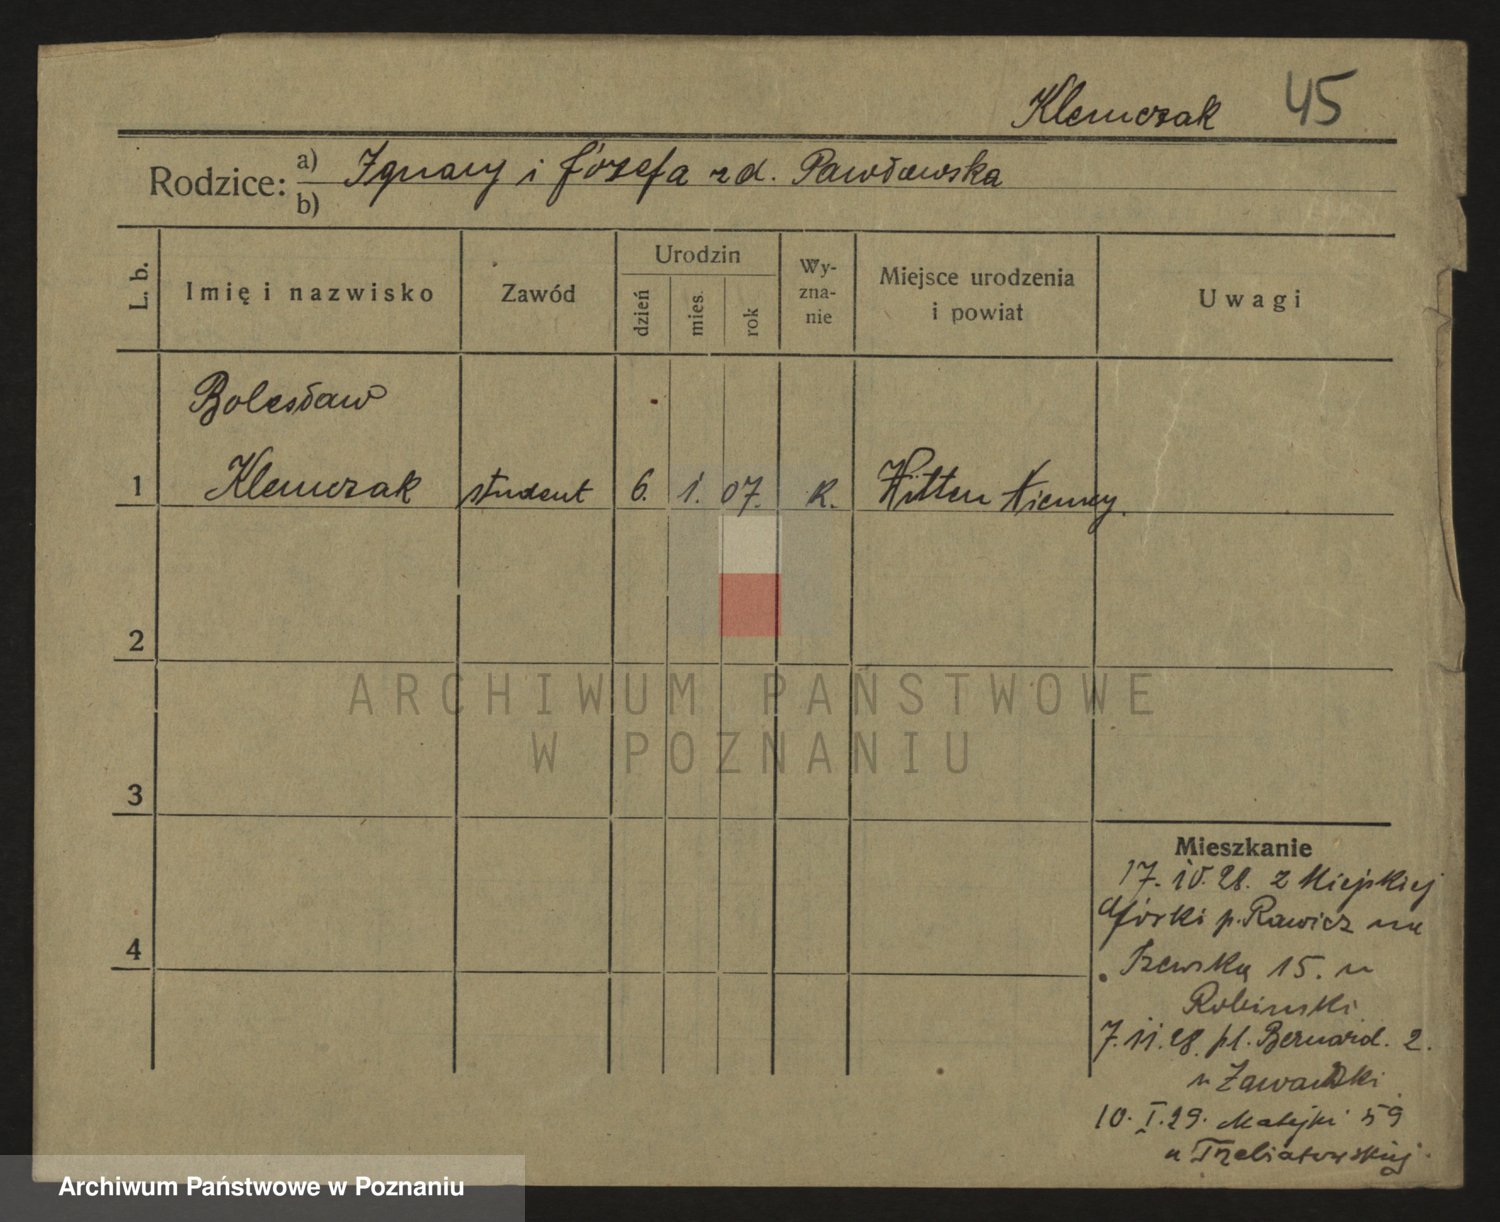 Klemczak 45
Rodzice: a) Ignacy i Józefa zd. Pawławska
b)
L. b. Imię i nazwisko Zawód Urodzin dzień mies. rok Wy-zna-nie Miejsce urodzenia i powiat Uwagi
Bolesław
1 Klemczak student 6. 1. 07. R. Witten Niemcy.
2
ARCHIWUM PAŃSTWOWE
W POZNANIU
3
Mieszkanie
17. IV. 28. z Miejskiej
Górki p. Rawicz na
15. u
Robinski
4
7.11.28. pl. Bernard. 2.
u Zawadzki
10. I. 29. Matejki 59
u Trzebiatowskiej
Archiwum Państwowe w Poznaniu